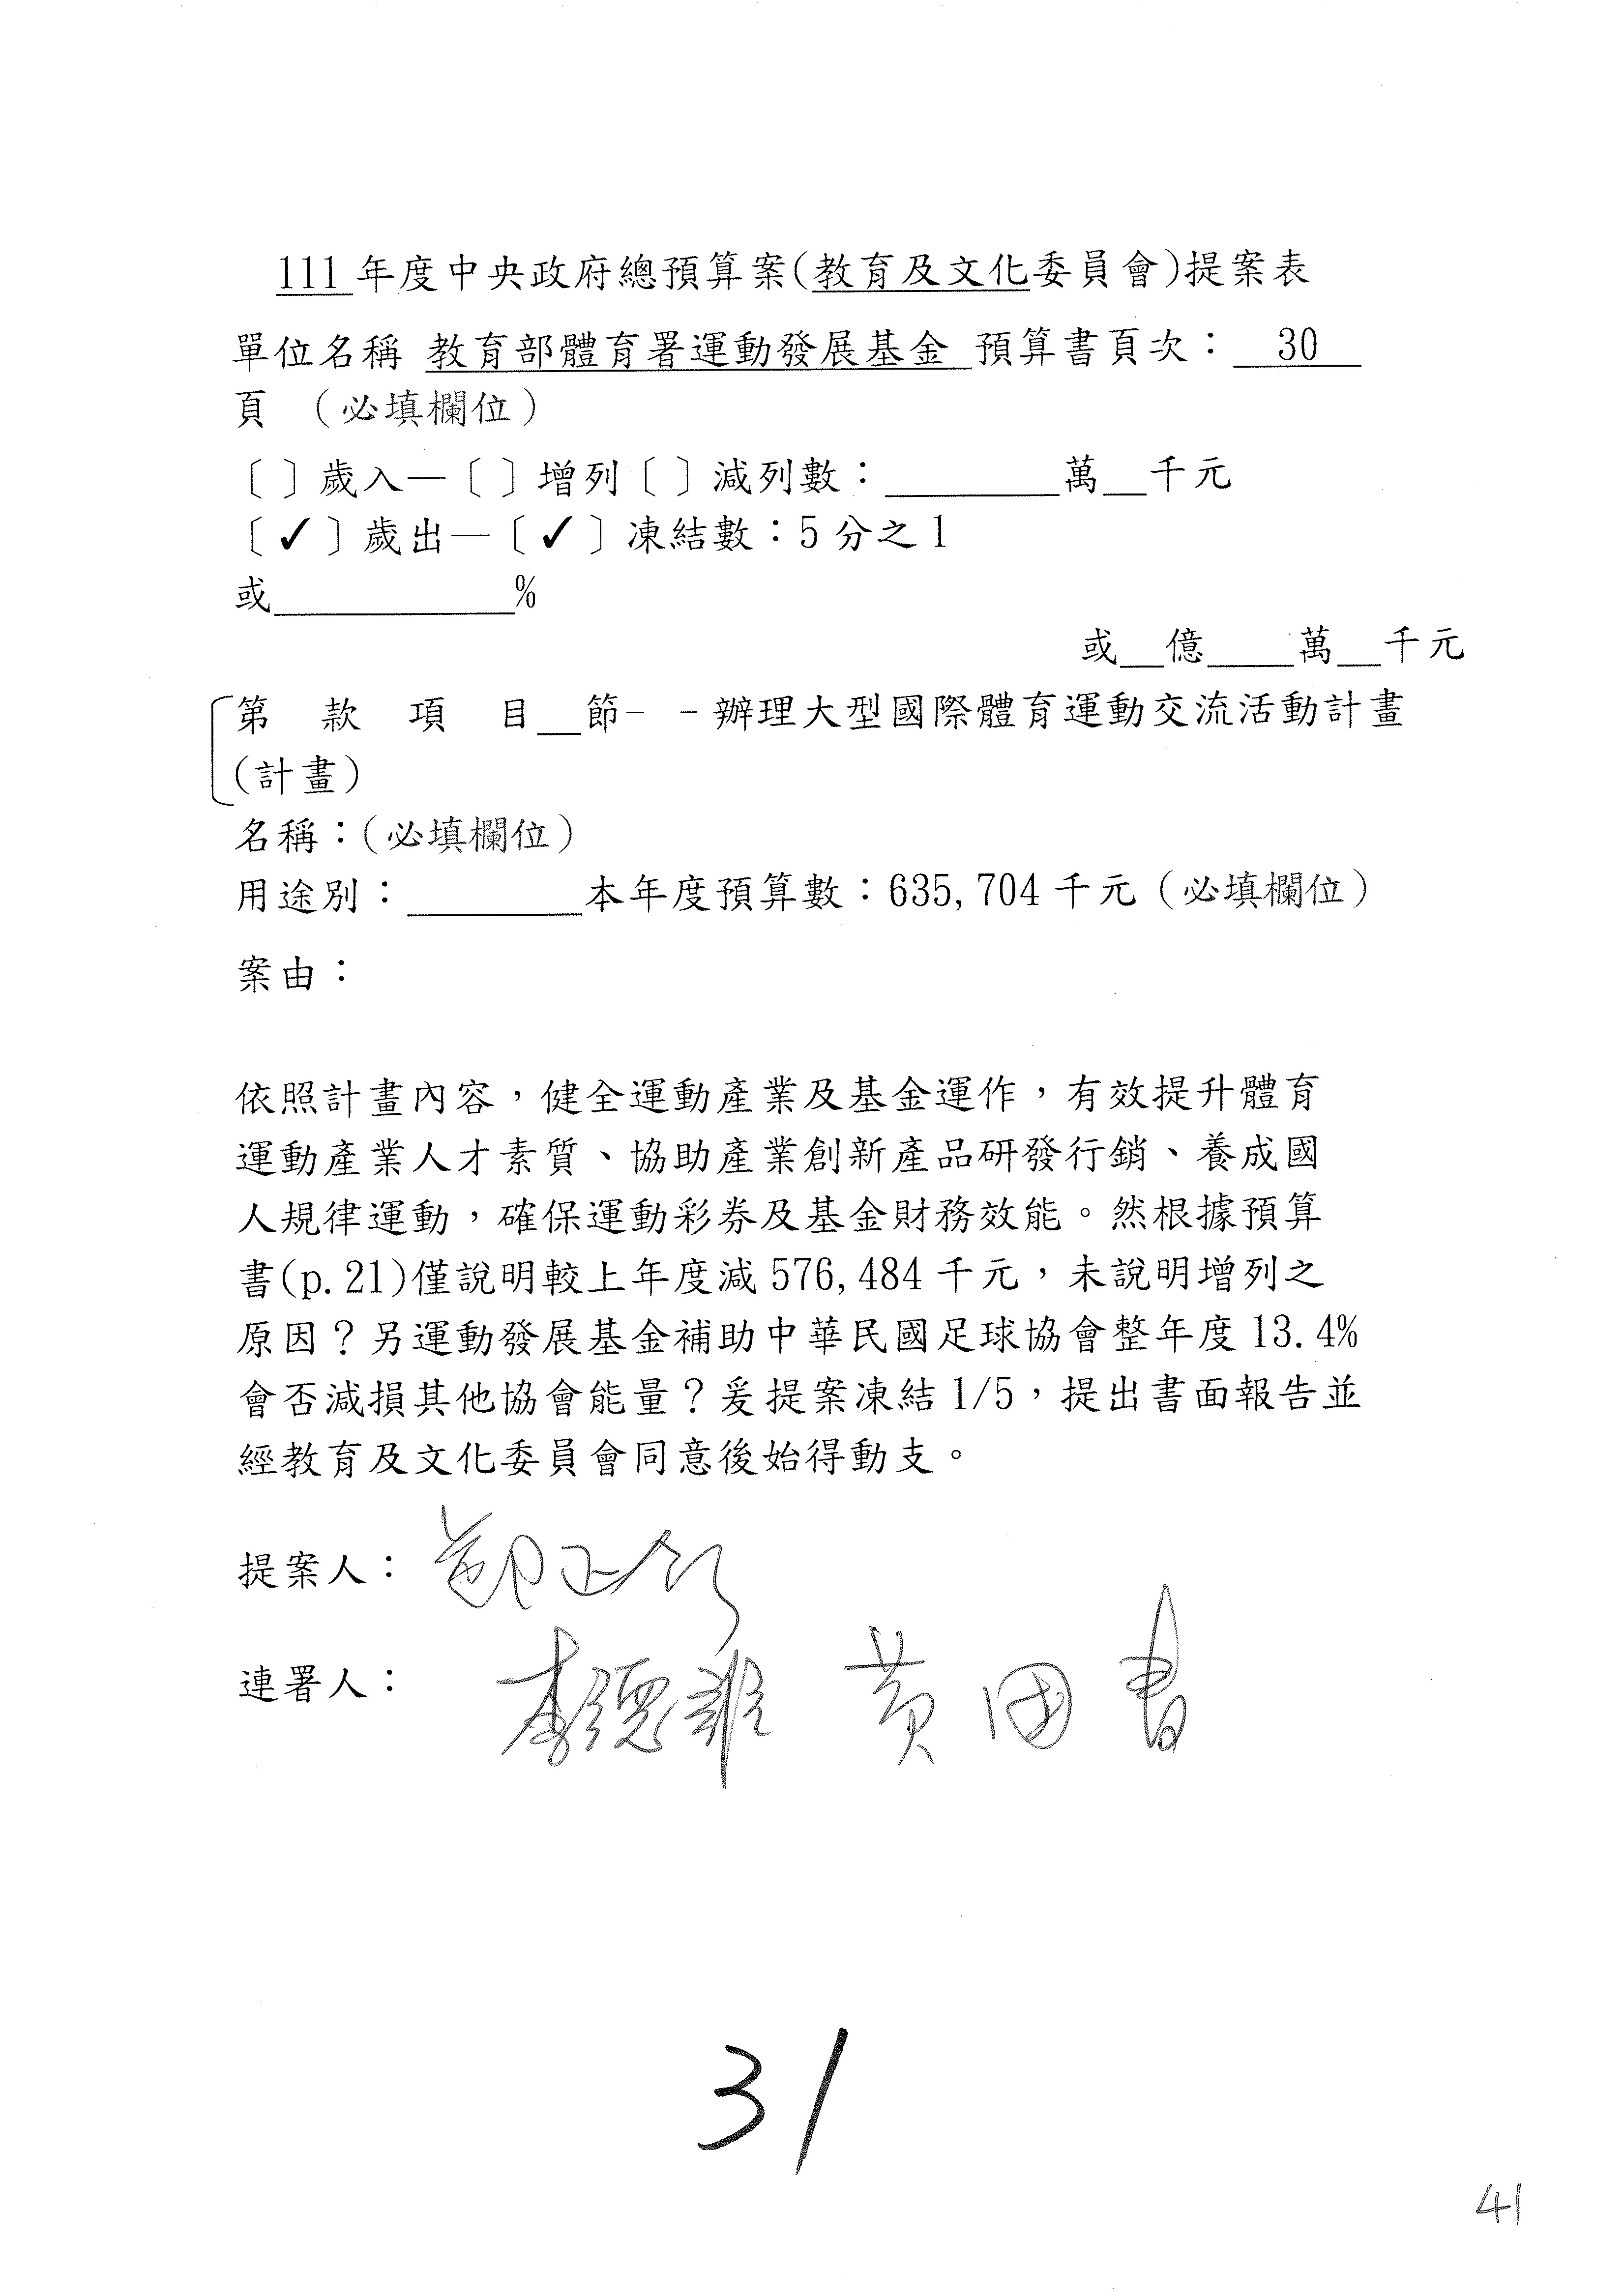 111年度中央政府總預算案(教育及文化委員會)提案表
單位名稱 教育部體育署運動發展基金 預算書頁次：　30　
頁 （必填欄位）
〔 〕歲入—〔 〕增列〔 〕減列數：________萬__千元
〔✓〕歲出—〔✓〕凍結數：5分之1
或___________%
或__億____萬__千元
第　款　項　目__節- -辦理大型國際體育運動交流活動計畫
(計畫)
名稱：(必填欄位)
用途別：________本年度預算數：635,704千元（必填欄位）
案由：
依照計畫內容，健全運動產業及基金運作，有效提升體育
運動產業人才素質、協助產業創新產品研發行銷、養成國
人規律運動，確保運動彩券及基金財務效能。然根據預算
書(p.21)僅說明較上年度減576,484千元，未說明增列之
原因？另運動發展基金補助中華民國足球協會整年度13.4%
會否減損其他協會能量？爰提案凍結1/5，提出書面報告並
經教育及文化委員會同意後始得動支。
提案人：
連署人： 李德維 黃國書
31
41